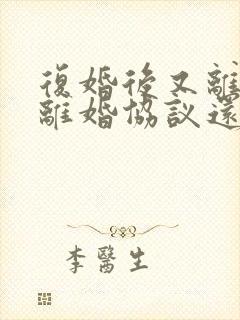 復婚後又離
離婚協議還
李醫生